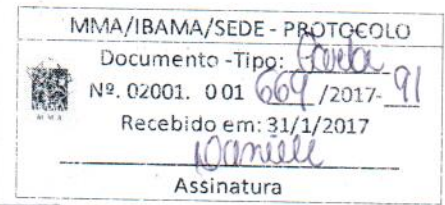 MMA/IBAMA/SEDE - PROTOCOLO
Documento -Tipo: Carta
Nº. 02001. 001 669 /2017- 91
Recebido em: 31/1/2017
Daniele
Assinatura